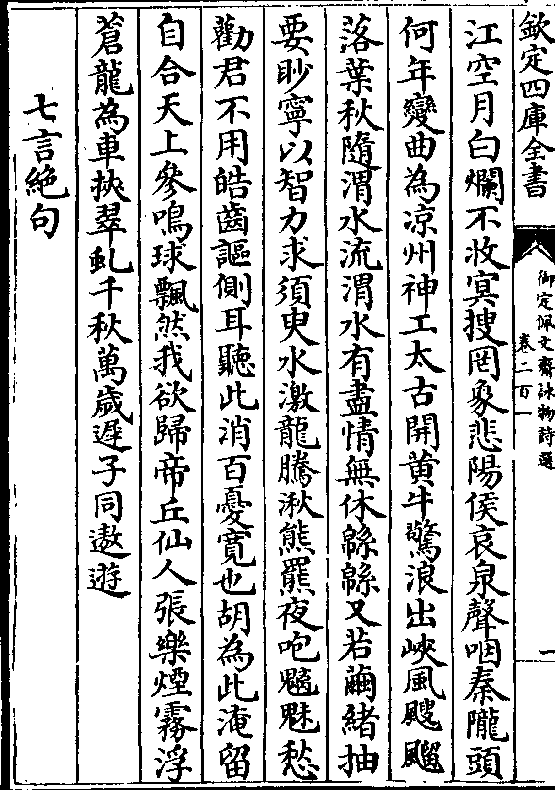 欽定四庫全書
御定佩文齋詠物詩選
卷二百一
一
江空月白爛不收冥搜罔象悲陽侯哀泉聲咽秦隴頭
何年變曲為凉州神工太古開黄牛驚浪出峽風颼飀
落葉秋隨渭水流渭水有盡情無休緜緜又若繭緒抽
要眇寧以智力求須臾水激龍騰湫熊羆夜咆魑魅愁
勸君不用皓齒謳側耳聽此消百憂寛也胡為此淹留
自合天上參鳴球飄然我欲歸帝丘仙人張樂煙霧浮
蒼龍為車挾翠虬千秋萬歲遲子同遨遊
七言絶句